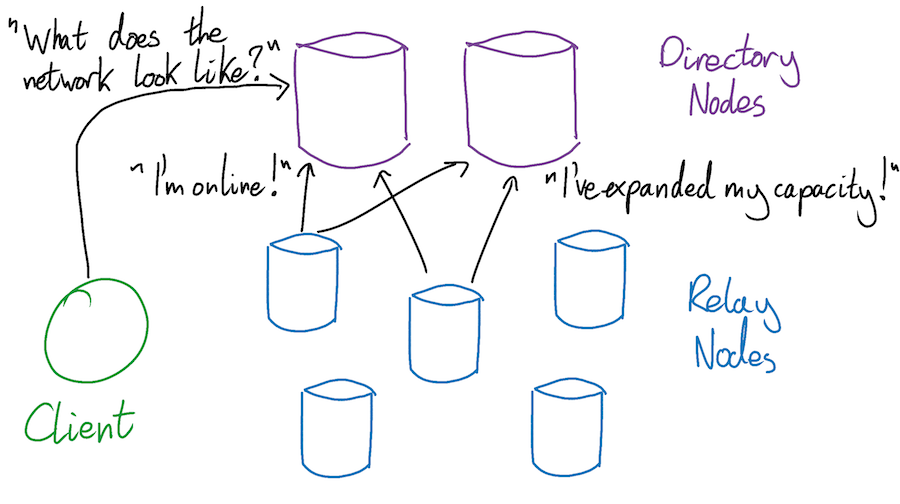 "What does the
network look like?"
Directory
Nodes
"I'm online!"
"I've expanded my capacity!"
Relay
Nodes
Client